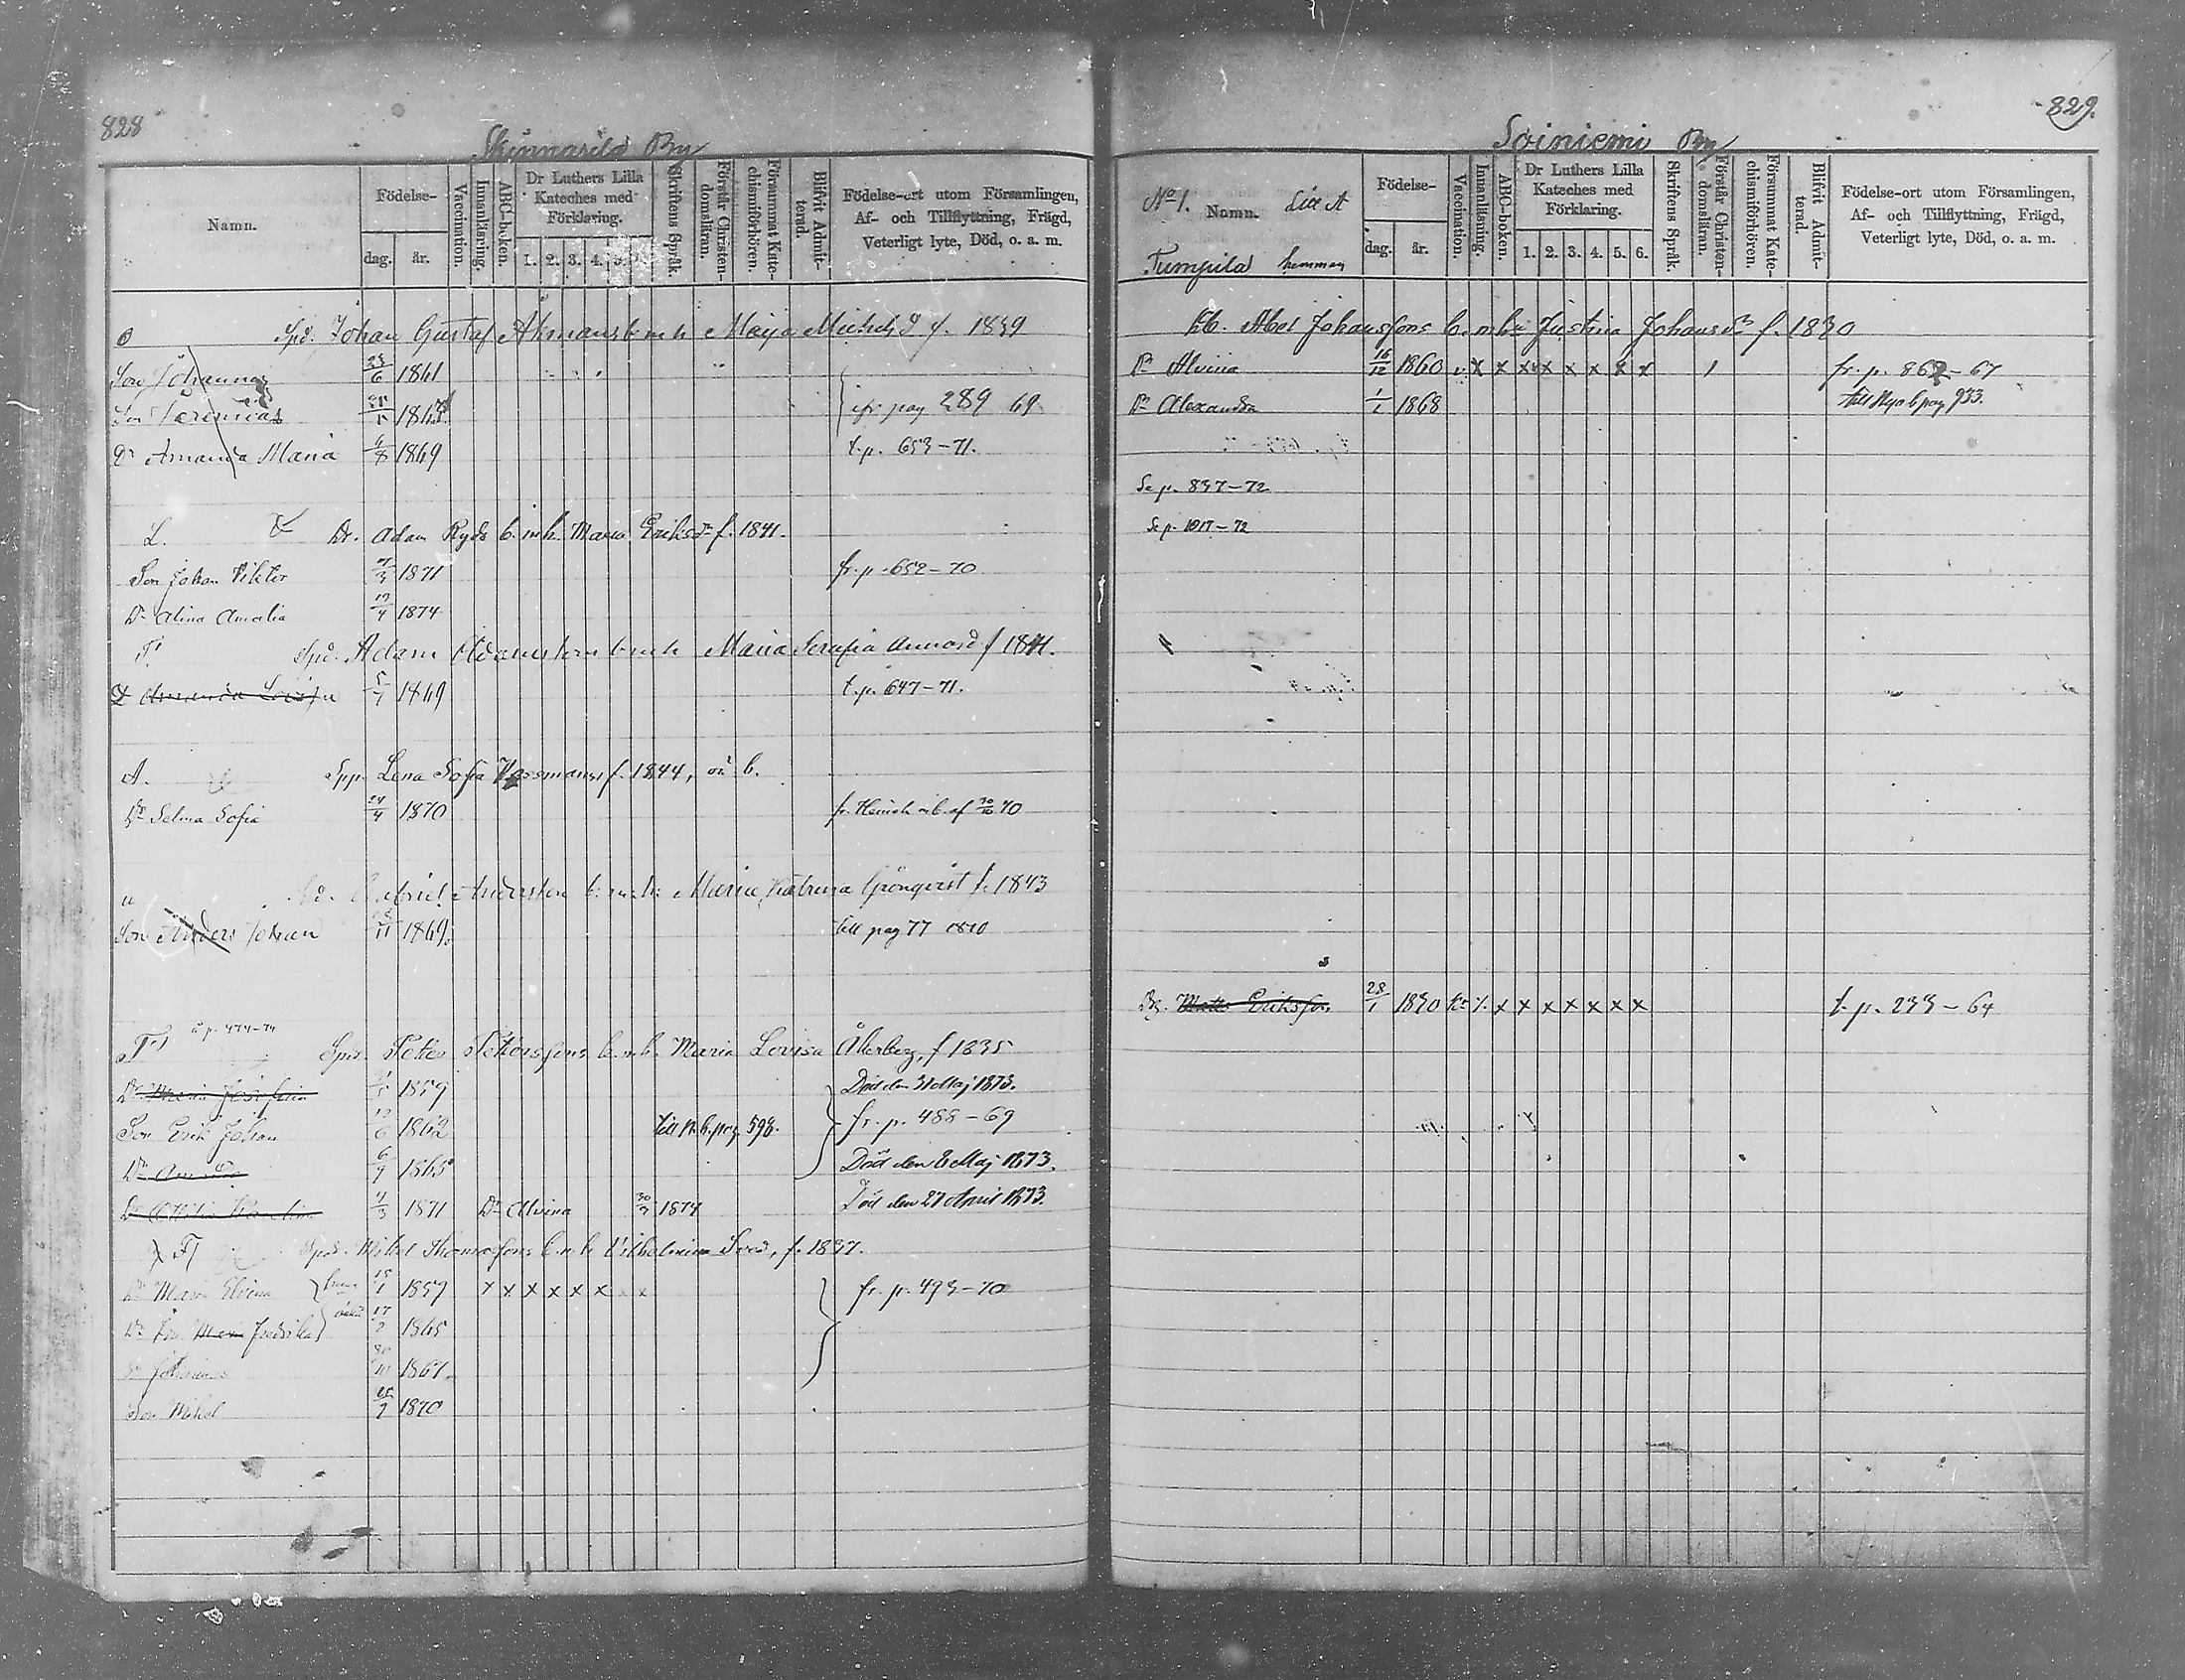 828
Skinnarilä By
Namn.
Födelse-
dag.
år.
Vaccination.
Innanläsning.
ABC-boken.
Dr Luthers Lilla Kateches med Förklaring.
1. 2. 3. 4. 5.
Skriftens Språk.
Förstår Christendomsläran.
Försummat Katechismiförhören.
Blifvit Admitterad.
Födelse-ort utom Församlingen,
Af- och Tillflyttning, Frägd,
Veterligt lyte, Död, o. a. m.
Spd. Johan Gustaf Åkmans b. m. h. Maija Michelsd f. 1839
Son Johannes 23/6 1861
Son Jeremias 1863 fr pag 289 69
Dr Amanda Maria 6/8 1869 t. p. 653-71.
L. Dr. Adam Ryds b. m. h. Maria Eriksdr f. 1841.
Son Johan Viktor 1871 fr. p. 652-70
Dr Alina Amalia 19/4 1874
Spd. Adam Adamsson b m h Maria Serafia f 1841.
Dr Amanda Lovisa 5/7 1869 t. p. 647-71.
A. Spp. Lena Sofia f. 1844, oä b.
Dr Selma Sofia 24/4 1870 fr. Heinola m. b. af 70
Gabriel Andersson b. m. h. Maria Katrina Grönqvist f. 1843
Son Anders Johan 1869 till pag 77 1870
p. 474-74
Spd. Peter Petersons b. m. h. Maria Lovisa Åkerberg, f 1835
Dr Maria Josefina 1859 Död den 31 Maj 1873.
Son Erik Johan 1862 till n. b. pag. 598. fr. p. 488-69
Dr Amanda 6/9 1865 Död den 8 Maj 1873.
Dr 4/3 1871 Dr Alvina 1874 Död den 27 April 1873.
Spd. Mikel Thomassons b. m. h. Vilhelmina Sved, f. 1837.
Dr Maria Elvina 15/1 1859 x x x x x x x x fr. p. 493-70
Dr Fredrika 1865
Johannes 1867.
Son Mikel 1870
829.
Soiniemi By
No 1. Namn. Litt A
Tumpila hemman
Födelse-
dag.
år.
Vaccination.
Innanläsning.
ABC-boken.
Dr Luthers Lilla Kateches med Förklaring.
1. 2. 3. 4. 5. 6.
Skriftens Språk.
Förstår Christendomsläran.
Försummat Katechismiförhören.
Blifvit Admitterad.
Födelse-ort utom Församlingen,
Af- och Tillflyttning, Frägd,
Veterligt lyte, Död, o. a. m.
Abel Johanssons b. m. h. Justina Johansdr f. 1830
Dr Alvina 16/12 1860 v x x x x x x x x 1 fr. p. 862-67
Dr Alexandra 1/1 1868 till Nya b pag 933.
Se p. 837-72
Se p. 1017-72
Drg. Matts Eriksson 28/1 1830 x x x x x x x t. p. 233-64